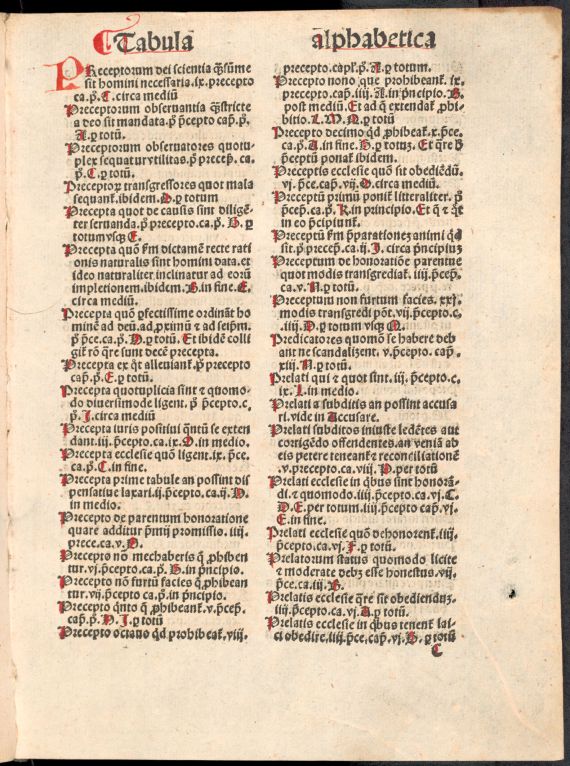 Tabula alphabetica
PReceptorum dei scientia q̄sūme
sit homini necessaria.ix.precepto
ca.p̄.C.circa mediū
Preceptorum obseruantia q̄stricte
a deo sit mandata.p̄ p̄cepto cap̄.p̄.
A.ꝑ totū.
Preceptorum obseruatores quotu-
plex sequatur vtilitas.p̄ precep̄. ca.
p̄.C.ꝑ totū.
Preceptoꝝ transgressores quot mala
sequant᷑.ibidem.D.ꝑ totum
Precepta quot de causis sint diligē-
ter seruanda.p̄ precepto.ca.p̄. B. ꝑ
totum vsqꝫ E.
Precepta quō s̄m dictamē recte rati
onis naturalis sint homini data.et
ideo naturaliter inclinatur ad eorū
impletionem.ibidem.B.in fine.E.
circa mediū.
Precepta quō ꝑfectissime ordināt ho
minē ad deū.ad ꝓximū ⁊ ad seip̄m.
p̄ p̄ce.ca.p̄.D.ꝑ totū. Et ibidē colli
git᷑ rō q̄re sunt decē precepta.
Precepta ex q̄t alleuiant᷑.p̄ precepto
cap̄.p̄.E.ꝑ totū.
Precepta quotuplicia sint ⁊ quomo-
do diuersimode ligent. p̄ p̄cepto.c.
p̄.I.circa mediū
Precepta iuris positiui q̄ntū se exten
dant.iij.p̄cepto.ca.ix.O.in medio.
Precepta ecclesie quō ligent.ix. p̄ce.
ca.p̄.C.in fine.
Precepta prime tabule an possint dis
pensatiue laxari.ij.p̄cepto.ca.ij.D.
in medio.
Precepto de parentum honoratione
quare additur p̄mij promissio. iiij.
prece.ca.v.D.
Precepto nō mechaberis q̄ ꝓhiben
tur.vj.p̄cepto.ca.p̄. B. in p̄ncipio.
Precepto nō furtū facies q̄ ꝓhibean
tur.vij.p̄cepto ca.p̄.in p̄ncipio.
Precepto q̄nto q̄ ꝓhibeant᷑.v.p̄cep̄.
cap̄.p̄.N.I.ꝑ totū
Precepto octauo qd̄ prohibeat᷑.viij.
precepto.cap̄.p̄.A.ꝑ totum.
Precepto nono que prohibeant᷑. ix.
precepto.cap̄.iiij.A.in p̄ncipio.B.
post mediū.Et ad q̄ extendat᷑ ꝓhi-
bitio.L.M.N.ꝑ totū
Precepto decimo qd̄ ꝓhibeat᷑.x.p̄ce.
ca.p̄.A.in fine.B.ꝑ totuꝫ.Et q̄re B
p̄ceptū ponat᷑ ibidem.
Preceptis ecclesie quō sit obediēdū.
vj.p̄ce.cap̄.vij.O.circa mediū.
Preceptū primū ponit᷑ litteraliter. p̄
p̄cep̄.ca.p̄.K.in principio.Et q̄ ⁊ q̄t
in eo p̄cipiunt᷑.
Preceptū s̄m p̄parationeꝫ animi qd̄
sit.p̄ precep̄.ca.ij.I.circa p̄ncipiuꝫ
Preceptum de honoratiōe parentuꝫ
quot modis transgrediat᷑.iiij.p̄cep̄.
ca.v.N.ꝑ totū.
Preceptum non furtum facies. xxj.
modis transgredi pōt.vij.p̄cepto.c.
.iiij.D.ꝑ totum vsqꝫ Q.
Predicatores quomō se habere deb
ant ne scandalizent. v.p̄cepto. cap̄.
xiij.N.ꝑ totū.
Prelati qui ⁊ quot sint.iij.p̄cepto.c.
ix.L.in medio.
Prelati a subditis an possint accusa
ri.vide in Accusare.
Prelati subditos iniuste ledētes aut
corrigēdo offendentes.an veniā ab
eis petere teneant᷑ ⁊ reconciliationē
.v.precepto.ca.viij.P.per totū
Prelati ecclesie in q̄bus sint honorā-
di.⁊ quomodo.iiij.p̄cepto.ca.vj.C.
D.E.per totum.iiij.p̄cepto cap̄.vj.
E.in fine.
Prelati ecclesie quō dehonorent᷑.iiij.
p̄cepto.ca.vj.F.ꝑ totū.
Prelatorum status quomodo licite
⁊ moderate debꝫ esse honestus.vij.
p̄ce.ca.iij.H.
Prelatis ecclesie q̄re sit obedienduꝫ.
iiij.p̄cepto.ca.vj.A.ꝑ totū.
Prelatis ecclesie in q̄bus tenent᷑ lai-
ci obedire.iiij.p̄ce.cap̄.vj.B.ꝑ totū
C